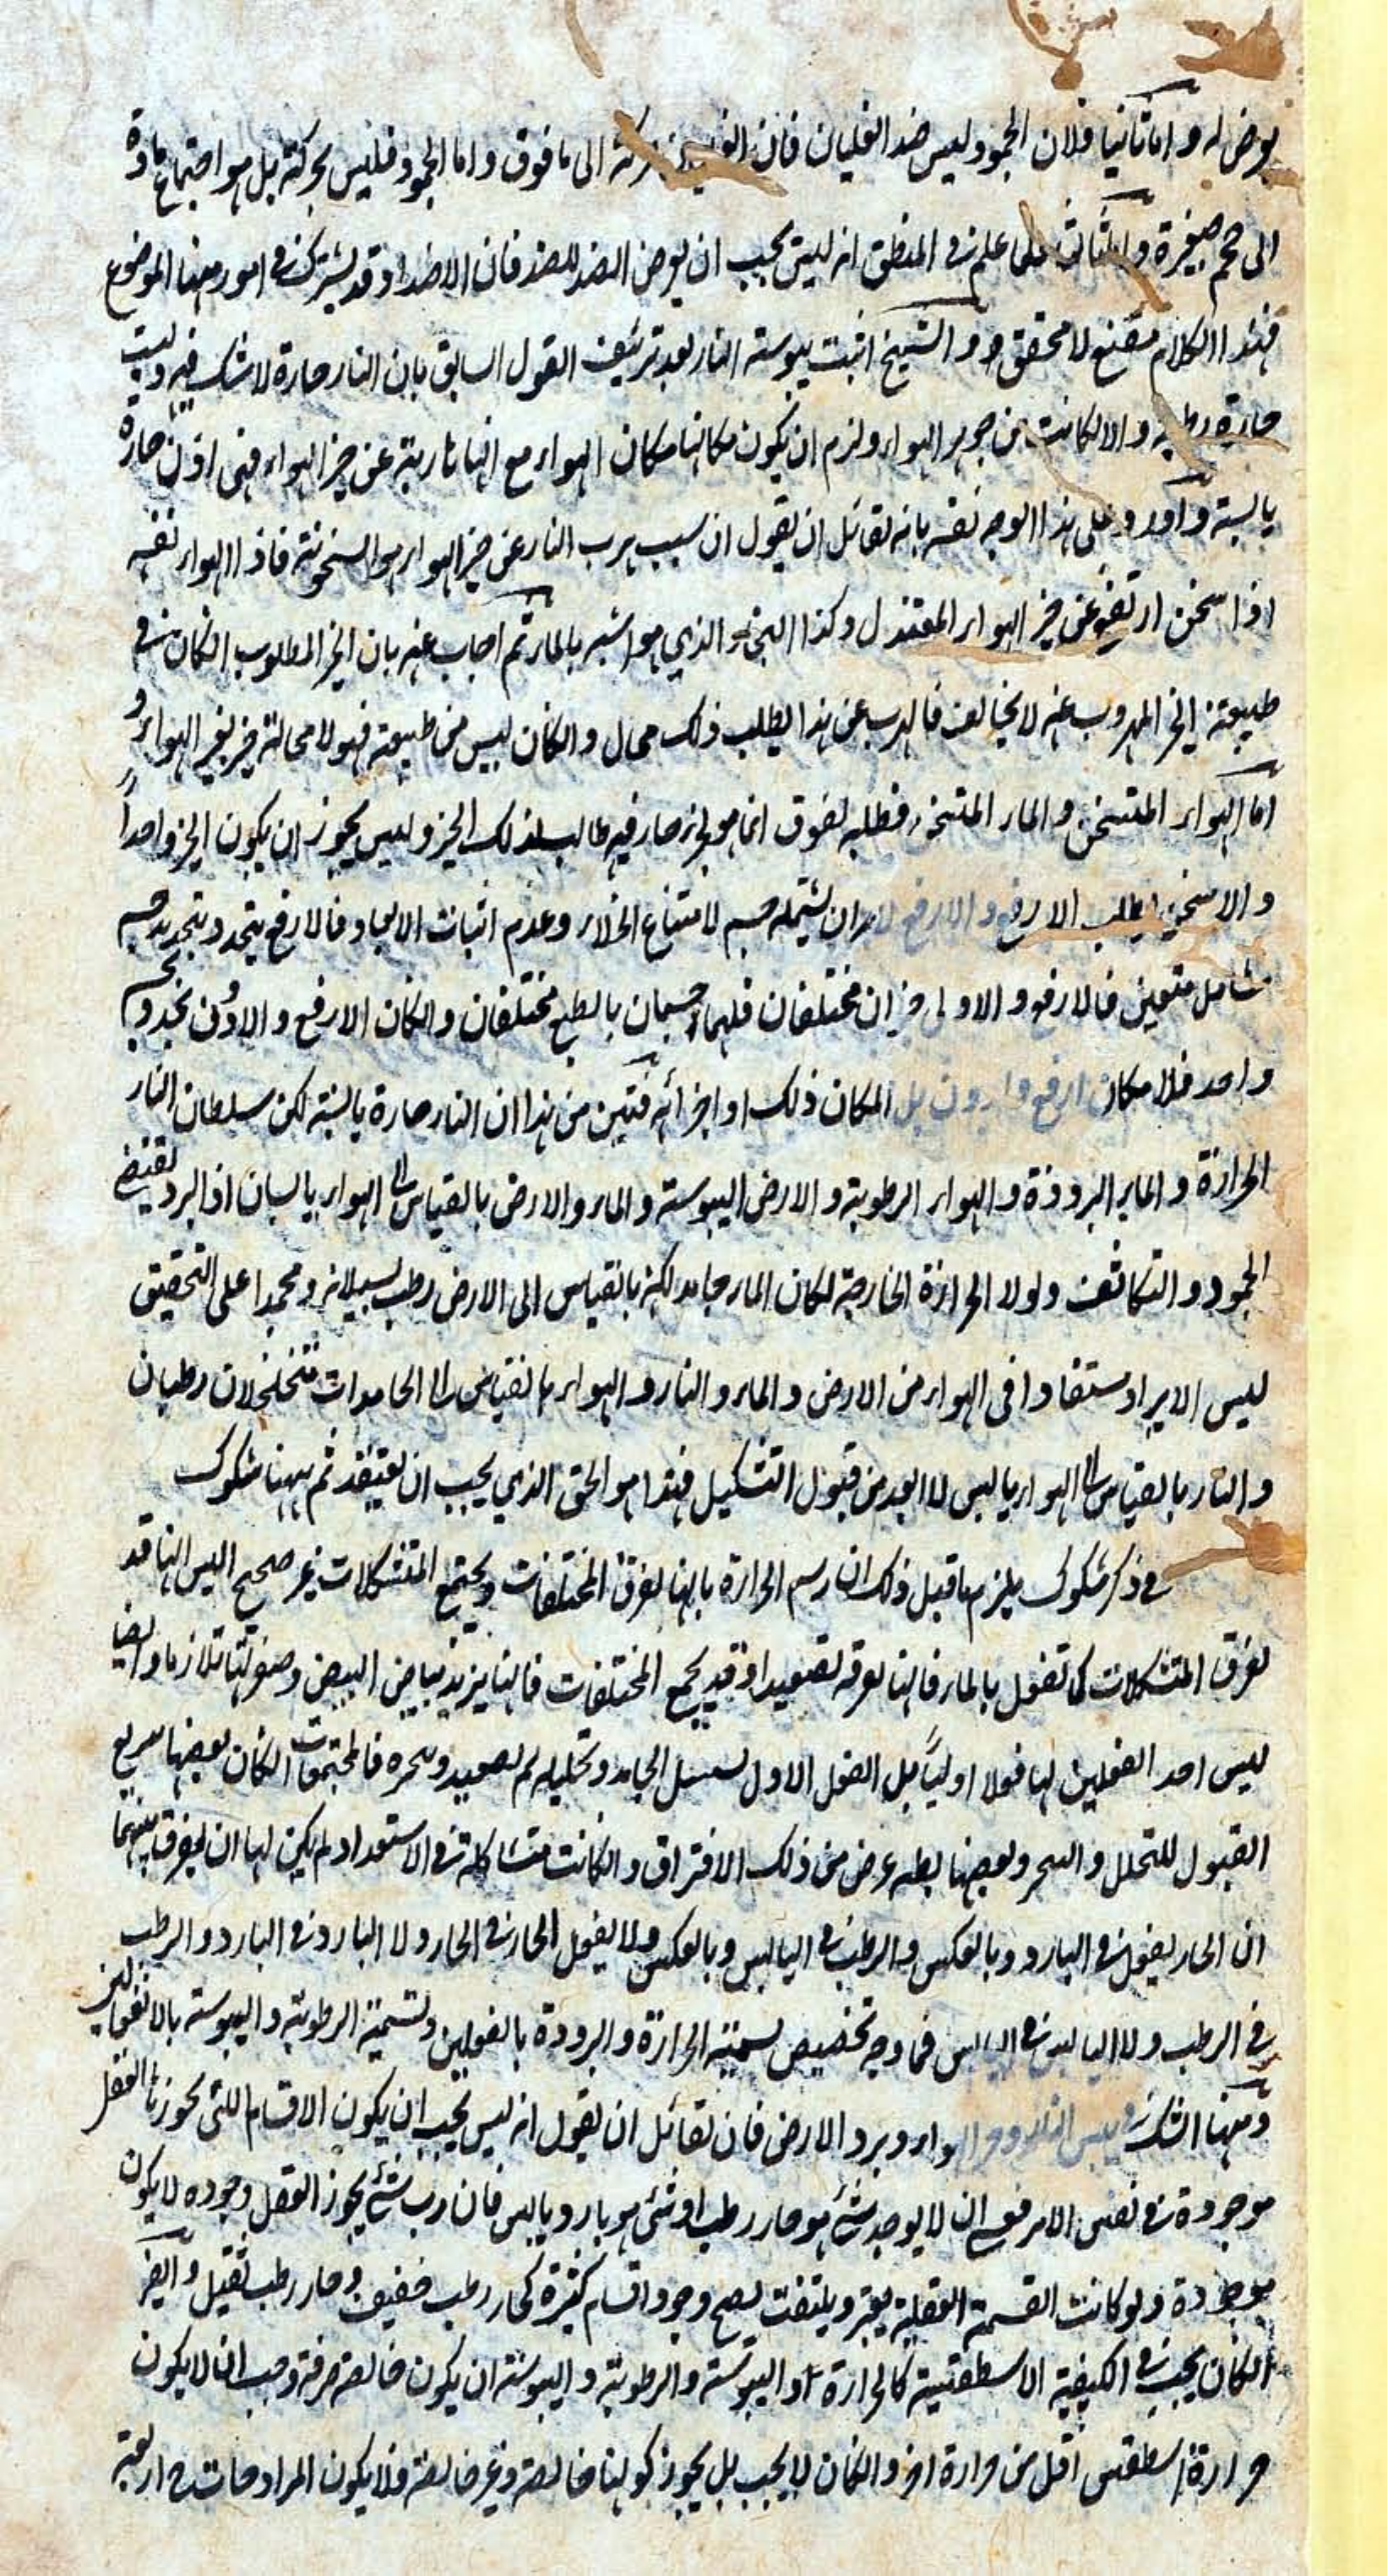 يعرض له واما ثانيا فلان الجمود ليس ضد الغليان فان حركة الى ما فوق واما الجمود فليس بحركة بل هو اجتماع مادة
الى حجم صغيرة واما ثالثا فلما علم في المنطق انه ليس يجب ان يعرض الضد للضد فان الاضداد قد يشترك في امور منها الموضوع
فهذا الكلام مقنع لا محقق والشيخ اثبت يبوسته النار بعد تزئيف القول السابق بان النار حارة لا شك فيه وليت
حارة رطبة والا لكانت من جوهر الهواء ولزم ان يكون مكانها مكان الهواء مع انها هاربة عن حيز الهواء فهى اذن حارة
يابسة واورد على هذا الوجه نفسه بانه لقائل ان يقول ان سبب هرب النار عن حيز الهواء هو السخونة فاذا الهواء نفسه
اذا سخن ارتفع عن حيز الهواء المعتدل وكذا البخار الذي هو اشبه بالماء ثم اجاب عنه بان الحيز المطلوب الكان في
طبيعته الحيز المهروب عنه لا يخالف فالهرب عن هذا لطلب ذلك محال والكان ليس من طبيعته فهو لا محالة حيز لغير الهواء و
اما الهواء المتسخن والماء المتبخر فطلبه لفوق انما هو لانه صار فيه طالب لذلك الحيز وليس يجوز ان يكون الحيز واحداً
والاسخن يطلب الارفع والارفع لا بد ان يشتمله جسم لامتناع الخلاء وعدم اثبات الابعاد فالارفع يتحدد بتحديد جسم
شامل متعين فالارفع والاولى حيزان مختلفان فلهما جسمان بالطبع مختلفان والكان الارفع والادون بحد وجسم
واحد فلا مكان ارفع وادون بل المكان ذلك او اجزائه فتبين من هذا ان النار حارة يابسة لكن سلطان النار
الحرارة والماء البرودة والهواء الرطوبة والارض اليبوسة والماء والارض بالقياس الى الهواء يابسان اذ البرد يقتضى
الجمود والتكاثف ولولا الحرارة الخارجة لكان الماء جامد لكنه بالقياس الى الارض رطب لسيلانه ومجمدا على التحقيق
ليس الا برد مستفادا في الهواء من الارض والماء والنار والهواء بالقياس الى الجامدات متخلخلان رطبان
والنار بالقياس الى الهواء يابس لا ابعد من قبول التشكيل فهذا هو الحق الذي يجب ان يعتقد ثم ههنا شكوك
في ذكر شكوك يلزم ما قبل ذلك ان رسم الحرارة بانها يفرق المختلفات ويجتمع المتشكلات غير صحيح اليس انها قد
يفرق المتشكلات كما تفعل بالماء فانها يفرقه تصعيدا وقد يجمع المختلفات فانها يزيد بياض البيض وصفرتها تلازما وايضا
ليس احد الفعلين لها فعلا اوليًا بل الفعل الاول تسييل الجامد وتحليله ثم تصعيده وتبخره فالمجتمعات الكان بعضها سريع
القبول للتحلل والبخر وبعضها بطئ عرض من ذلك الافتراق والكانت متشاكلة في الاستعداد لم يكن لها ان يفرق بينهما
ان الحار يفعل في البارد وبالعكس والرطب في اليابس وبالعكس ولا يفعل الحار في الحار ولا البارد في البارد والرطب
في الرطب ولا اليابس في اليابس فما وجه تخصيص تسميته الحرارة والبرودة بالفعلين وتسميته الرطوبة واليبوسة بالانفعالين
وههنا الشك في يبس النار وحر الهواء وبرد الارض فان لقائل ان يقول انه ليس يجب ان يكون الاقسام اللتى يجوزها العقل
موجودة في نفس الامر فعسى ان لا يوجد شئ هو حار رطب او شئ هو بارد يابس فان رب شئ يجوز العقل وجوده لا يكون
موجودة ولو كانت القسمة العقلية يعتبر ويلتفت لصح وجود اقسام كثيرة كحار رطب خفيف وحار رطب ثقيل وايضا
الكان يجب في الكيفية الاسطقسية كالحرارة او اليبوسة والرطوبة واليبوسة ان يكون خالصة صرفة وجب ان لا يكون
حرارة اسطقس اقل من حرارة اخر والكان لا يجب بل يجوز كونها خالصة وغير خالصة فلا يكون المزاد جات اربعة